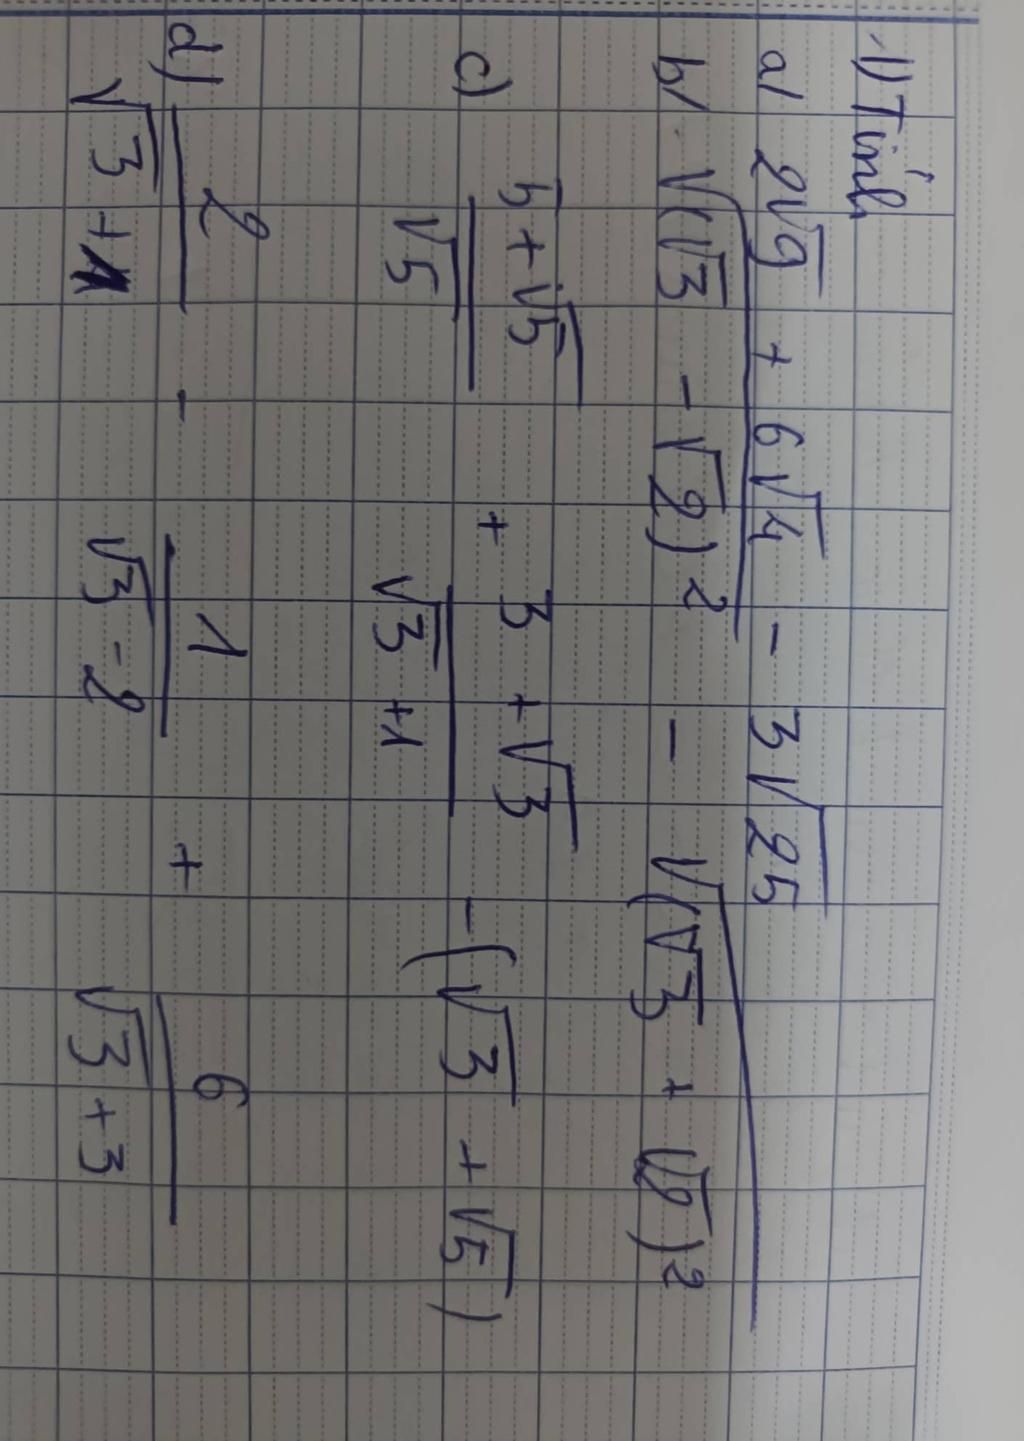 1) Tính
a/ 2√9 + 6√4 - 3√25
b/ √(√3 - √2)² - √(√3 + √2)²
c) (5 + √5)/√5 + (3 + √3)/(√3 + 1) - (√3 + √5)
d) 2/(√3 + 1) - 1/(√3 - 2) + 6/(√3 + 3)